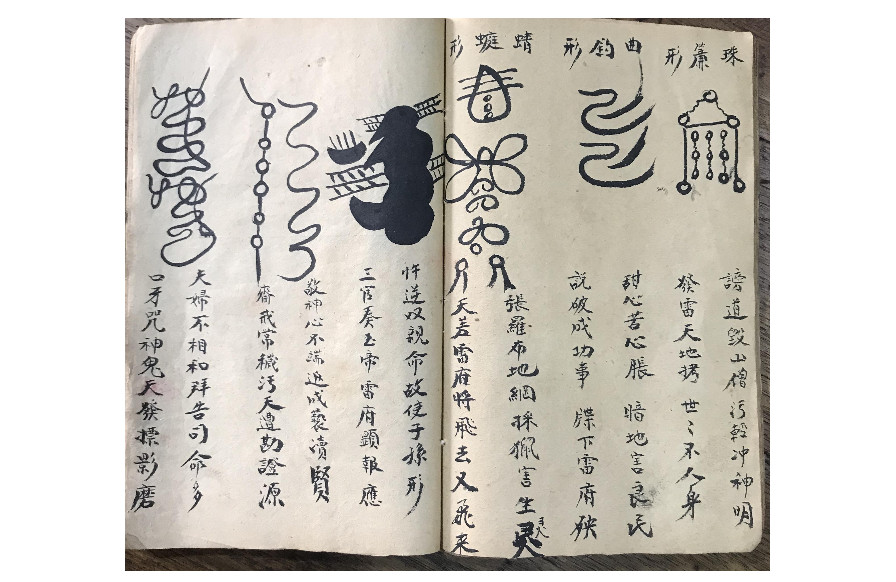 珠簾形
謗道毀山僧污輕冲神明
發雷天地拷世〻不人身
曲鈎形
甜心苦心脹暗地害良民
説破成功事牒下雷府殃
蜻蜓形
張羅布地網採獵害生灵
天差雷府將飛去又飛来
忤逆叹親命故使子孫形
三官奏玉帝雷府顕報應
敬神心不端返成褻瀆賢
齋戒常穢污天遣勘證源
夫婦不相和拜告司命多
口牙咒神鬼天發摽影磨